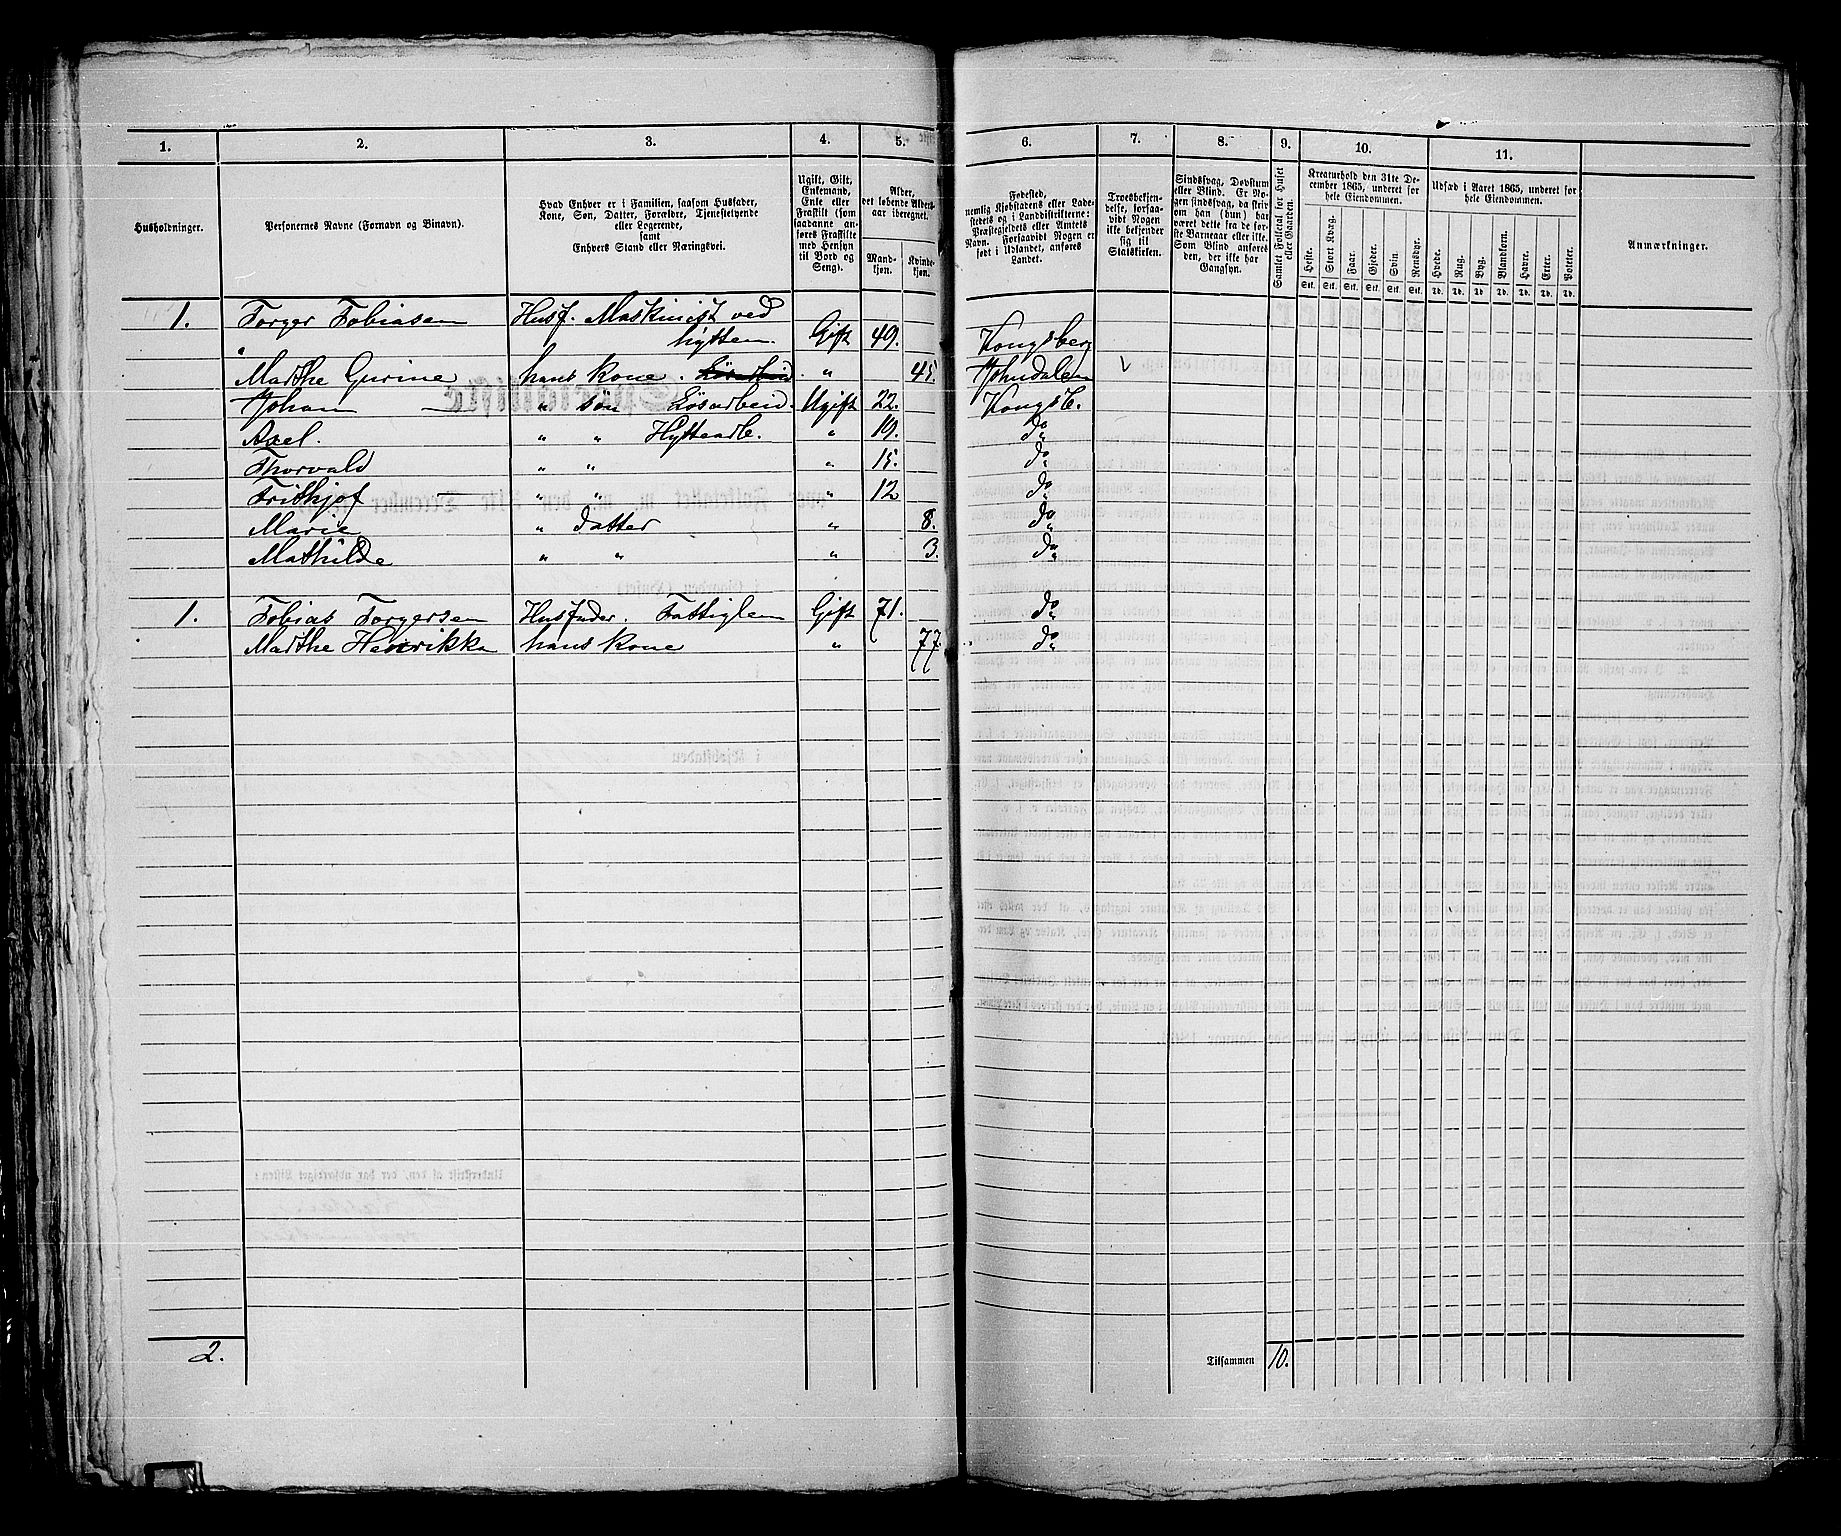 1. 2. 3. 4. 5. 6. 7. 8. 9. 10. 11.
Husholdninger.
Personernes Navne (Fornavn og Binavn).
Hvad Enhver er i Familien, saasom Husfader,
Kone, Søn, Datter, Forældre, Tjenestetyende
eller Logerende,
samt
Enhvers Stand eller Næringsvei.
Ugift, Gift,
Enkemand,
Enke eller
Fraskilt (som
saadanne an-
føres Fraskilte
med Hensyn
til Bord og
Seng).
Alder,
det løbende Alders-
aar iberegnet.
Mand-
kjøn.
Kvinde-
kjøn.
Fødested,
nemlig Kjøbstadens eller Lade-
stedets og i Landdistrikterne:
Præstegjeldets eller Amtets
Navn. Forsaavidt Nogen er
født i Udlandet, anføres
Landet.
Troesbekjen-
delse, forsaa-
vidt Nogen
ikke bekjender
sig til
Statskirken.
Sindssvag, Døvstum
eller Blind. Er No-
gen sindssvag, da skriv
om han (hun) har
været dette fra de før-
ste Barneaar eller ikke.
Som Blind anføres
den, der ikke har
Gangsyn.
Samlet Folketal for Huset
eller Gaarden.
Kreaturhold den 31te De-
cember 1865, underet for
hele Eiendommen.
Heste. Stort Kvæg. Faar. Gjeder. Svin. Rensdyr.
Stk. Stk. Stk. Stk. Stk. Stk.
Udsæd i Aaret 1865, underet for
hele Eiendommen.
Hvede. Rug. Byg. Blandkorn. Havre. Erter. Poteter.
Td. Td. Td. Td. Td. Td. Td.
Anmærkninger.
1. Torger Tobiasen Husf. Maskinist ved
Hytten Gift 49. Kongsberg
Marthe Gurine hans Kone. " 45. Johndalen
Johan " søn Løsarbeid. Ugift 22. Kongsb.
Axel. " " Hyttearb. " 19. do
Thorvald " " " 15. do
Frithjof " " " 12 do
Marie " datter " 8. do
Mathilde " " " 3. do
1. Tobias Torgersen Husfader. Fattiglem Gift 71. do
Marthe Henrikka hans Kone " 77. do
2. Tilsammen 10.